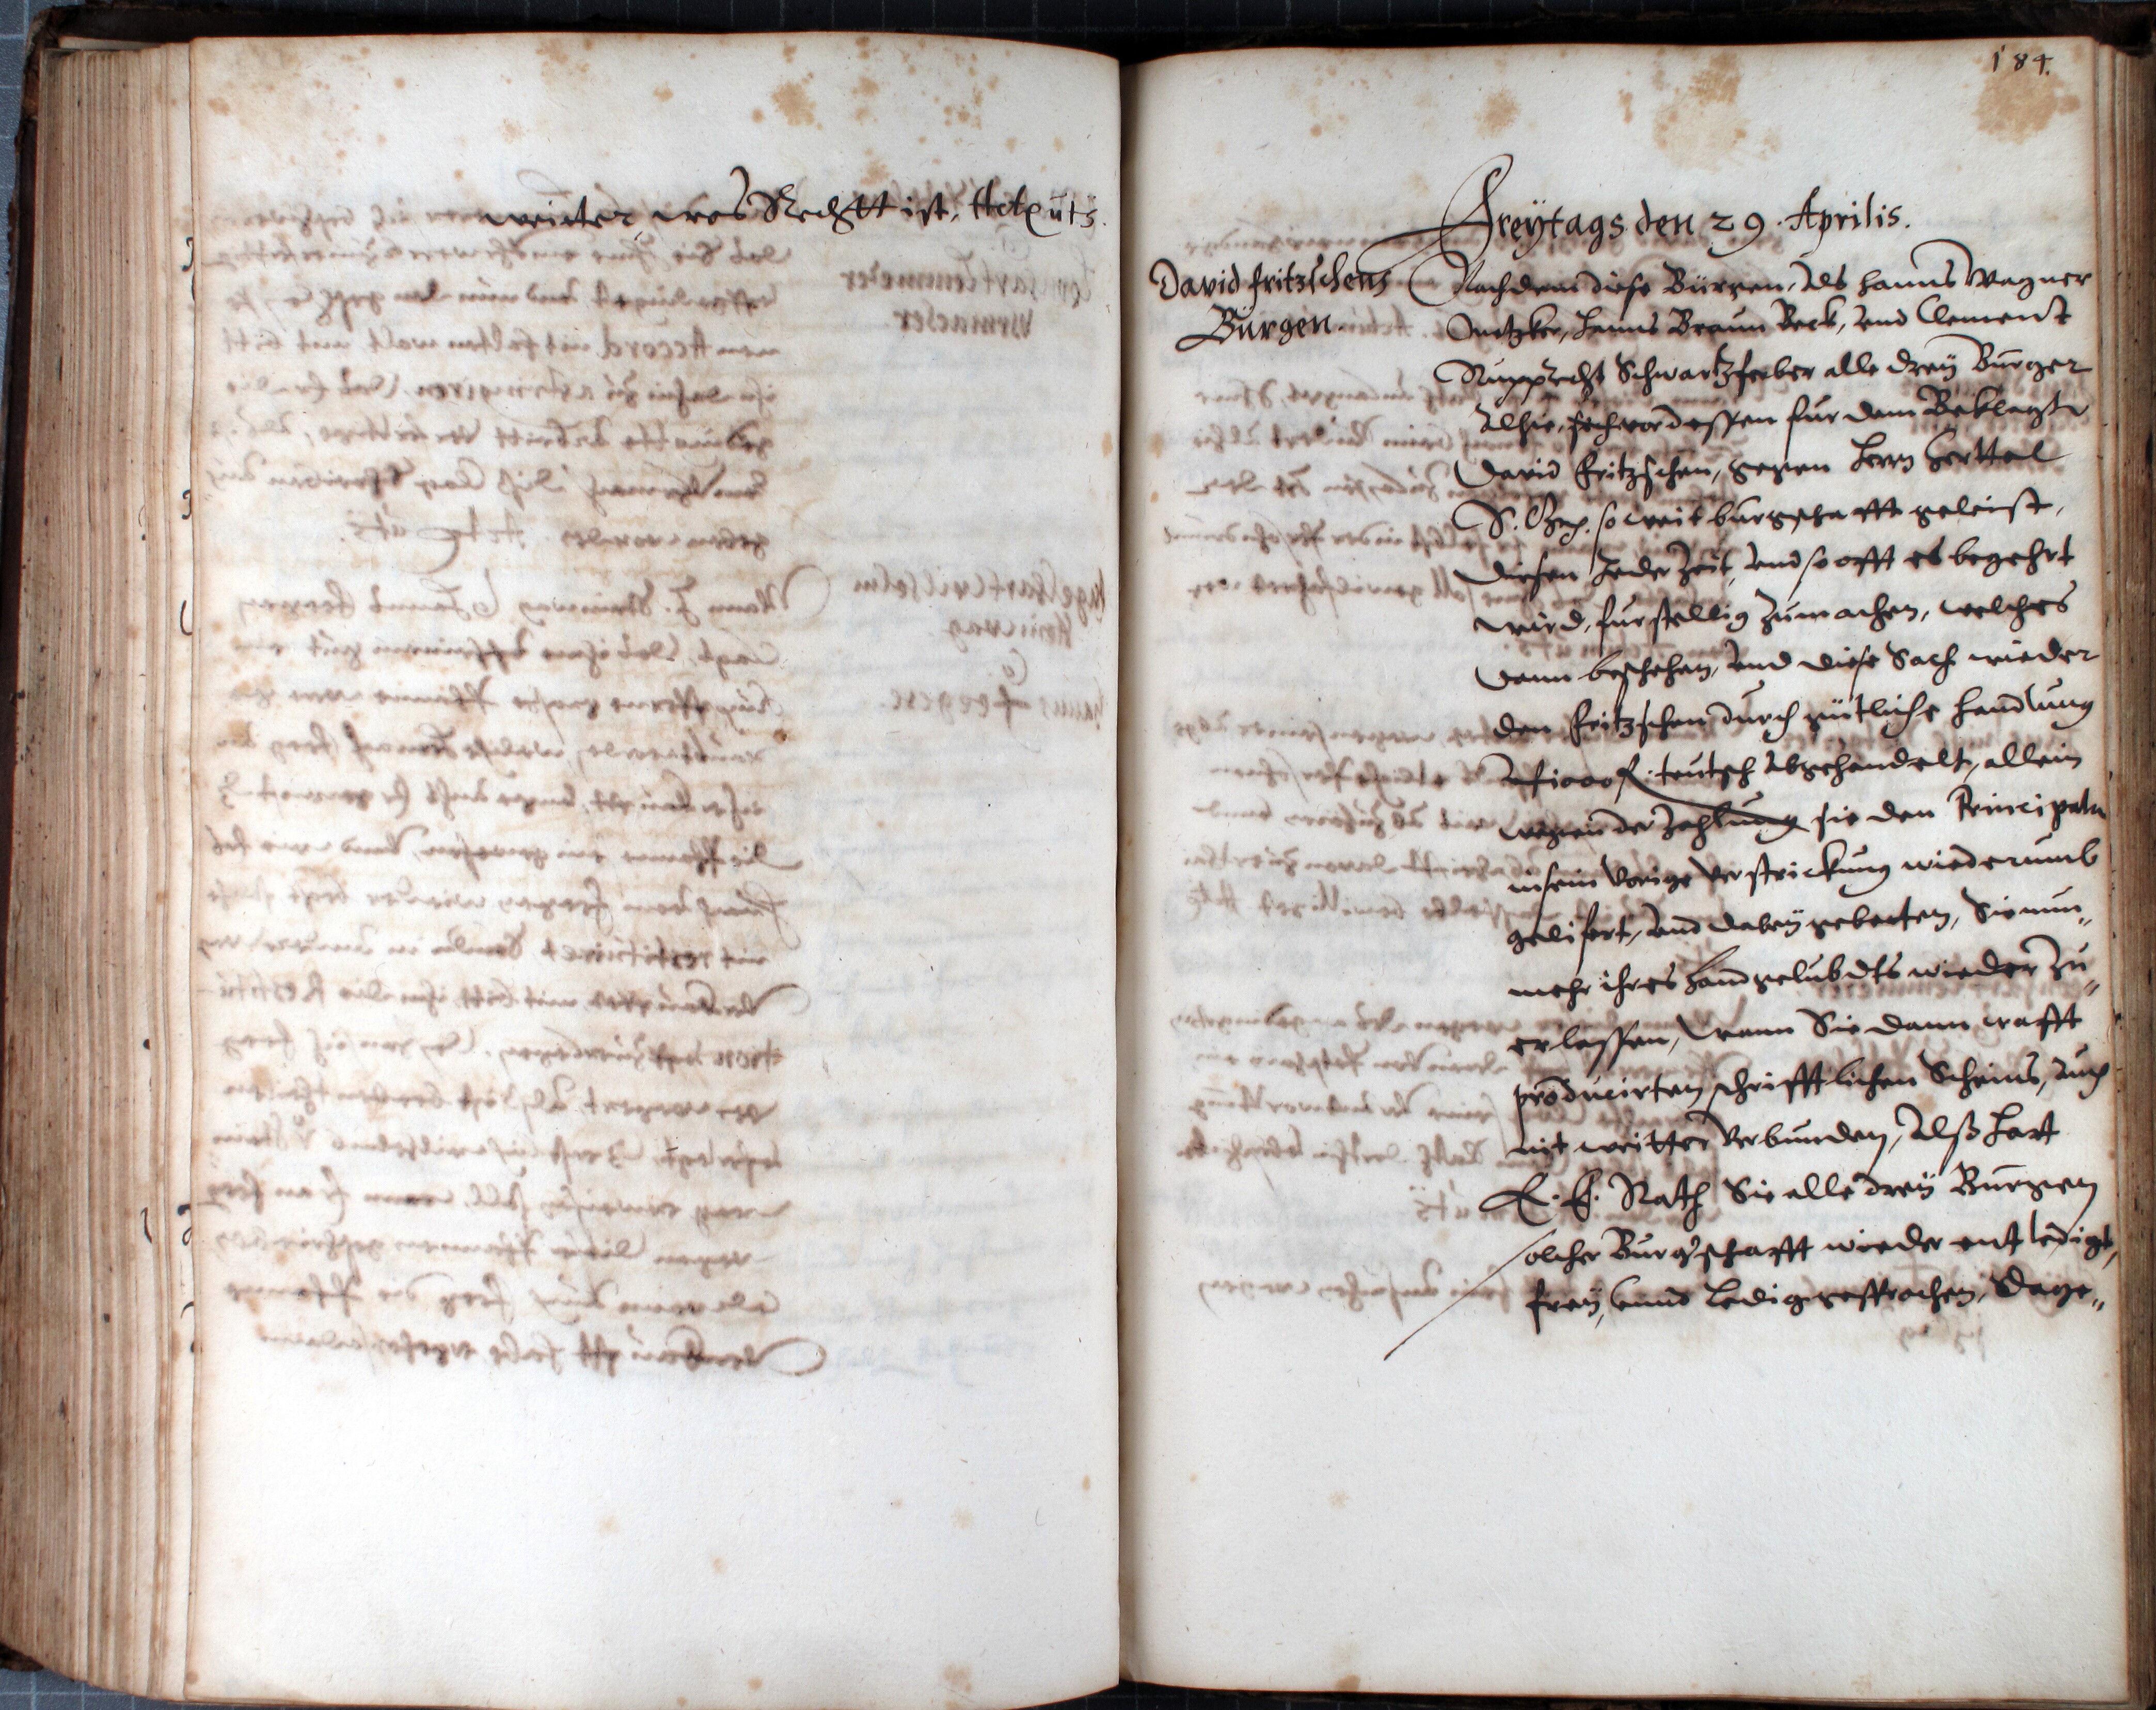 weiter, was Rechtt ist, Act ūts.
184.
Freÿtags den 29. Aprilis.
David Fritzschens
Bürgen.
Nachdem diese Bürgen, Als Hanns Wagner
Metzker, Hanns Braun Beck, und Clement
Rupprecht Schwartzferber alle dreÿ Bürger
Alhie, sich vor dessen für dem Beklagten
David Fritzschen, gegen Herrn
so weit bürgschafft geleist,
diesen Jeder Zeit, und so offt es begehrt
wird, fürstellig zumachen, welches
dann beschehen, und diese Sach wieder
den Fritzschen durch gütliche handlung
Uf 1000 fl. teutsch Abgehandelt, allein
wegen der Zahlung sie den Principaln
in sein Vorige Verstrickung wiederumb
gelifert, und dabeÿ gebetten, Sie nun„
mehr ihres handgelübdts wieder zu„
erlassen, Wann Sie dann crafft
producirten schrifftlichen Scheins, auch
nit weitter Verbunden, Alß hatt
E. E. Rath Sie alle dreÿ Bürgen
solcher Bürgschafft wieder entledigt,
freÿ, unnd Ledig gesprochen, Dage„